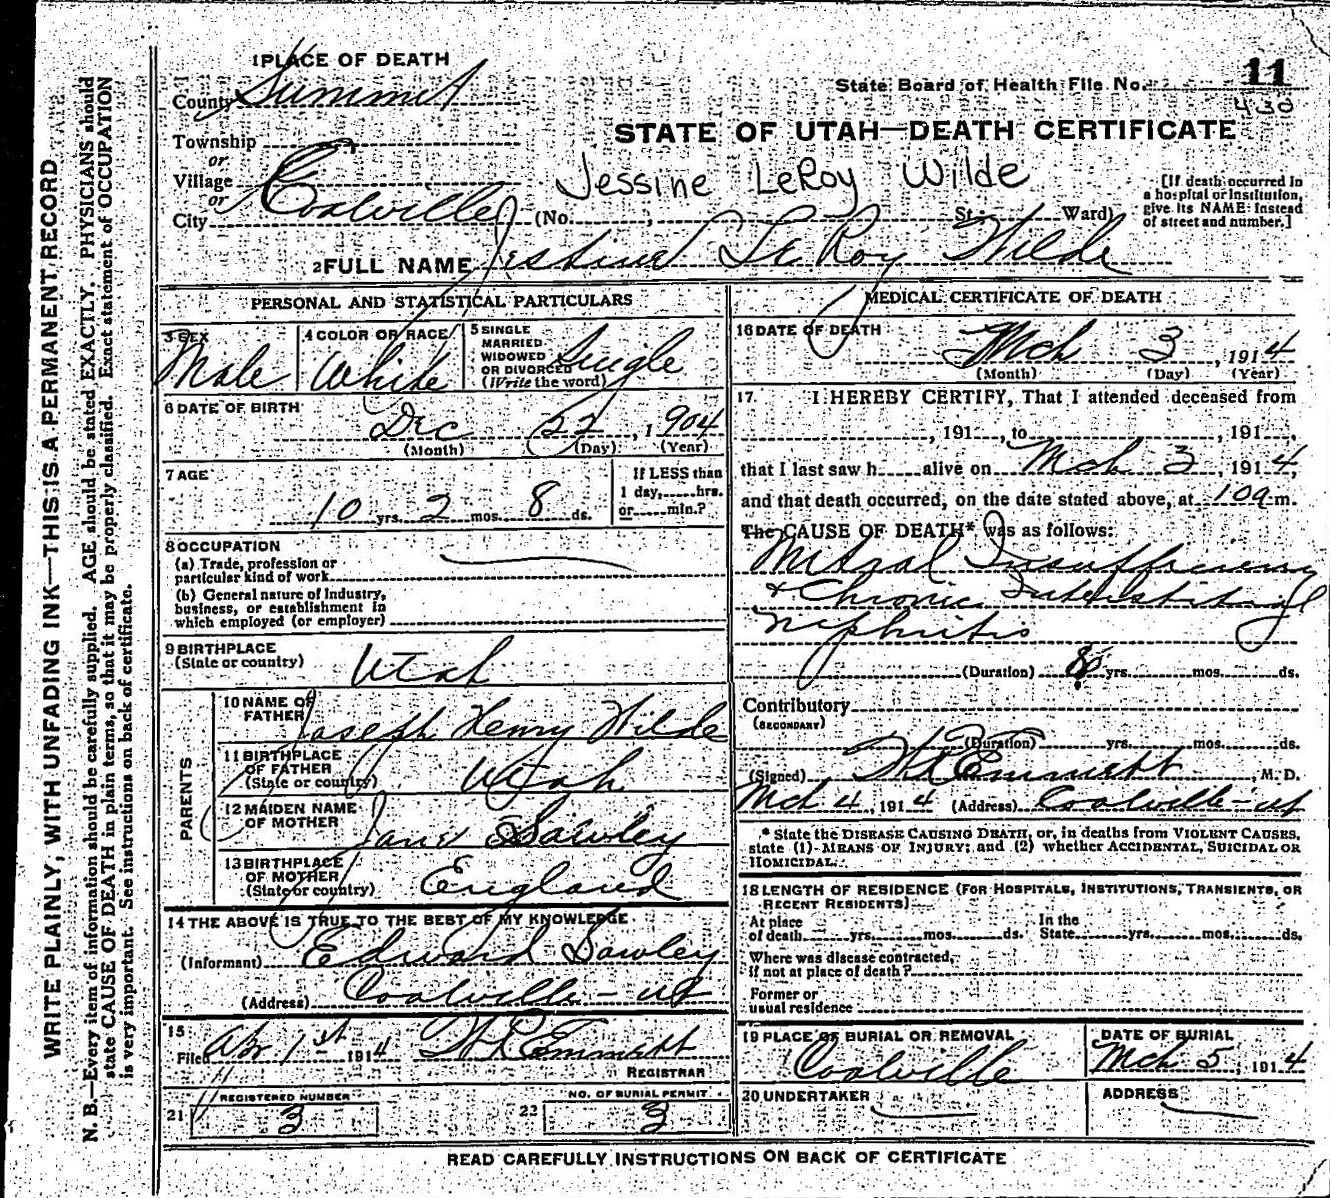 11
State Board of Health File No.
430
1 PLACE OF DEATH
County Summit
STATE OF UTAH—DEATH CERTIFICATE
Township
or
Village
or
City Coalville
Jessine LeRoy Wilde
(No. ; St. Ward)
[If death occurred in
a hospital or institution,
give its NAME instead
of street and number.]
2 FULL NAME LeRoy Wilde
PERSONAL AND STATISTICAL PARTICULARS
3 SEX
Male
4 COLOR OR RACE
White
5 SINGLE
MARRIED
WIDOWED
OR DIVORCED
(Write the word)
Single
6 DATE OF BIRTH
Dec 22, 1904
(Month) (Day) (Year)
7 AGE
10 yrs. 2 mos. 8 ds.
If LESS than
1 day, hrs.
or min.?
8 OCCUPATION
(a) Trade, profession or
particular kind of work
(b) General nature of Industry,
business, or establishment in
which employed (or employer)
9 BIRTHPLACE
(State or country)
Utah
PARENTS
10 NAME OF
FATHER
Joseph Henry Wilde
11 BIRTHPLACE
OF FATHER
(State or country)
Utah
12 MAIDEN NAME
OF MOTHER
Jane Sawley
13 BIRTHPLACE
OF MOTHER
(State or country)
England
14 THE ABOVE IS TRUE TO THE BEST OF MY KNOWLEDGE
(Informant) Edward Sawley
(Address) Coalville - ut
15
Filed Apr 1st 1914 Emmett
REGISTRAR
REGISTERED NUMBER
21 3
NO. OF BURIAL PERMIT
22 3
MEDICAL CERTIFICATE OF DEATH
16 DATE OF DEATH
Mch 3, 1914
(Month) (Day) (Year)
17. I HEREBY CERTIFY, That I attended deceased from
, 191 , to , 191 ,
that I last saw h alive on Mch 3, 1914,
and that death occurred, on the date stated above, at 109 m.
The CAUSE OF DEATH* was as follows:
Mitral Insufficiency
& Chronic Interstitial
Nephritis
(Duration) yrs. mos. ds.
Contributory
(SECONDARY)
(Duration) yrs. mos. ds.
(Signed) Emmett, M. D.
Mch 4, 1914 (Address) Coalville - ut
* State the DISEASE CAUSING DEATH, or, in deaths from VIOLENT CAUSES,
state (1) MEANS OF INJURY; and (2) whether ACCIDENTAL, SUICIDAL OR
HOMICIDAL.
18 LENGTH OF RESIDENCE (FOR HOSPITALS, INSTITUTIONS, TRANSIENTS, OR
RECENT RESIDENTS)
At place
of death yrs. mos. ds.
In the
State yrs. mos. ds.
Where was disease contracted,
if not at place of death?
Former or
usual residence
19 PLACE OF BURIAL OR REMOVAL
Coalville
DATE OF BURIAL
Mch 5, 1914
20 UNDERTAKER
ADDRESS
READ CAREFULLY INSTRUCTIONS ON BACK OF CERTIFICATE
WRITE PLAINLY, WITH UNFADING INK—THIS IS A PERMANENT RECORD
N. B.—Every item of information should be carefully supplied. AGE should be stated EXACTLY. PHYSICIANS should
state CAUSE OF DEATH in plain terms, so that it may be properly classified. Exact statement of OCCUPATION
is very important. See instructions on back of certificate.